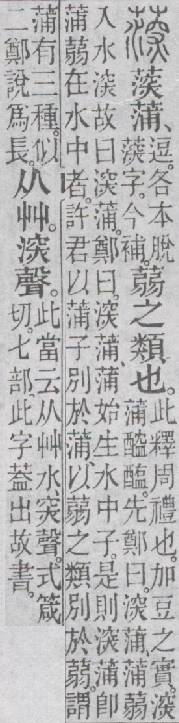 𦸂蒲、
逗。各本脫
𦸂字。今補。
蒻之類也。
此釋周禮也。加豆之實。㴱
蒲醓醢。先鄭曰。㴱蒲、蒲蒻
入水㴱故曰㴱蒲。鄭曰。㴱蒲、蒲始生水中子。是則㴱蒲卽
蒲蒻在水中者。許君以蒲子別於蒲、以蒻之類別於蒻。謂
蒲有三種。似
二鄭說爲長。
从艸。㴱聲。
此當云从艸水、罙聲。式箴
切。七部。此字葢出故書。